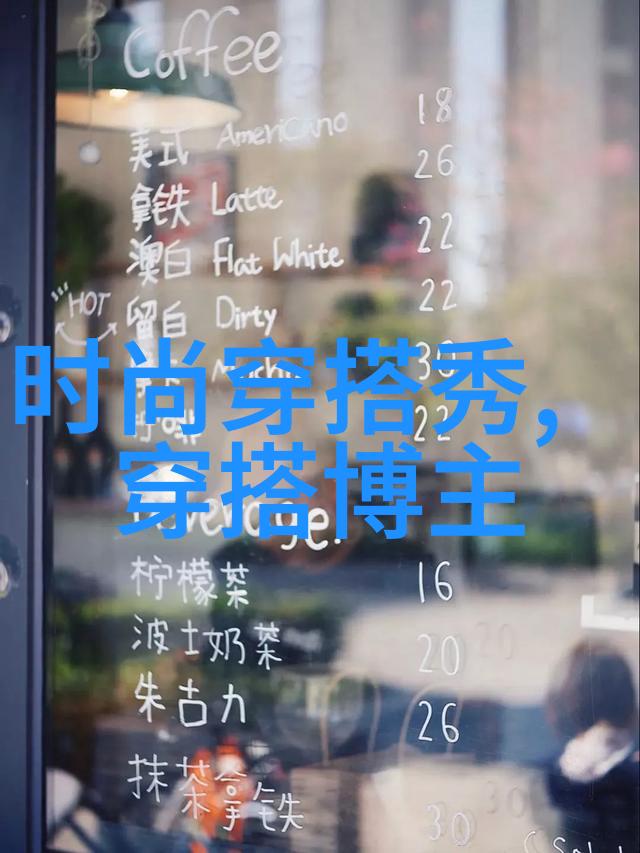 Coffee
美式 Americano 18
拿铁 Latte 26
澳白 Flat White 22
HOT 留白 Dirty 22
30
时尚穿搭秀，
22
穿搭博主
柠檬茶 16
波士奶茶 20
朱古力 26
抹茶拿铁 30